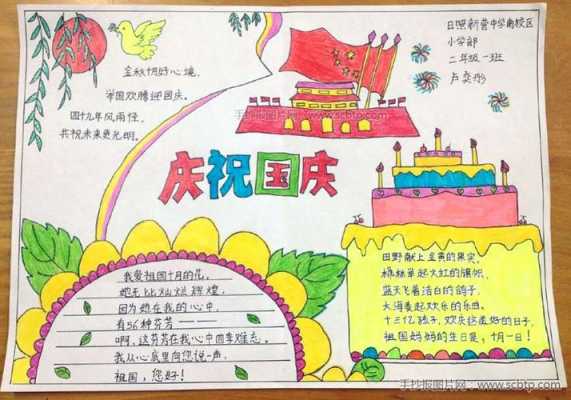 金秋十月好心境,
举国欢腾迎国庆。
四十九年风雨怪,
共祝未来更光明。
日照新营中学南校区
小学部
二年级一班
手抄报图片网:www.scbtp.com
庆祝国庆
我爱祖国十月的花,
她无比灿烂辉煌,
因为她在我的心中,
有56种芬芳
啊,这芬芳在我心中四季难忘。
我从心底里向您说一声,
祖国,您好!
田野献上金黄的果实,
枫林举起火红的旗帜,
蓝天飞着洁白的鸽子,
大海奏起欢乐的乐曲。
十三亿孩子,欢庆这美好的日子,
祖国妈妈的生日是,十月一日!
手抄报图片网:www.scbtp.com